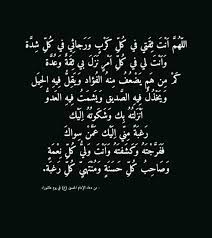 اللّهُمَّ أَنْتَ ثِقَتِي فِي كُلِّ كَرْبٍ وَرَجَائِي فِي كُلِّ شِدَّة
وَأَنْتَ لِي فِي كُلِّ أَمْرٍ نَزَلَ بِي ثِقَةٌ وَعُدَّة
كَمْ مِنْ هَمٍّ يَضْعُفُ مِنْهُ الفُؤَاد وَتَقِلُّ فِيهِ الحِيَل
وَيَخْذُلُ فِيهِ الصَّدِيق وَيَشْمَتُ فِيهِ العَدُو
أَنْزَلْتُهُ بِكَ وَشَكَوْتُهُ إِلَيْكَ
رَغْبَةً مِنِّي إِلَيْكَ عَمَّنْ سِوَاكَ
فَفَرَّجْتَهُ وَكَشَفْتَهُ وَأَنْتَ وَلِيُّ كُلِّ نِعْمَة
وَصَاحِبُ كُلِّ حَسَنَةٍ وَمُنْتَهَى كُلِّ رَغْبَة.
- من دعاء الإمام الحسين (ع) في يوم عاشوراء